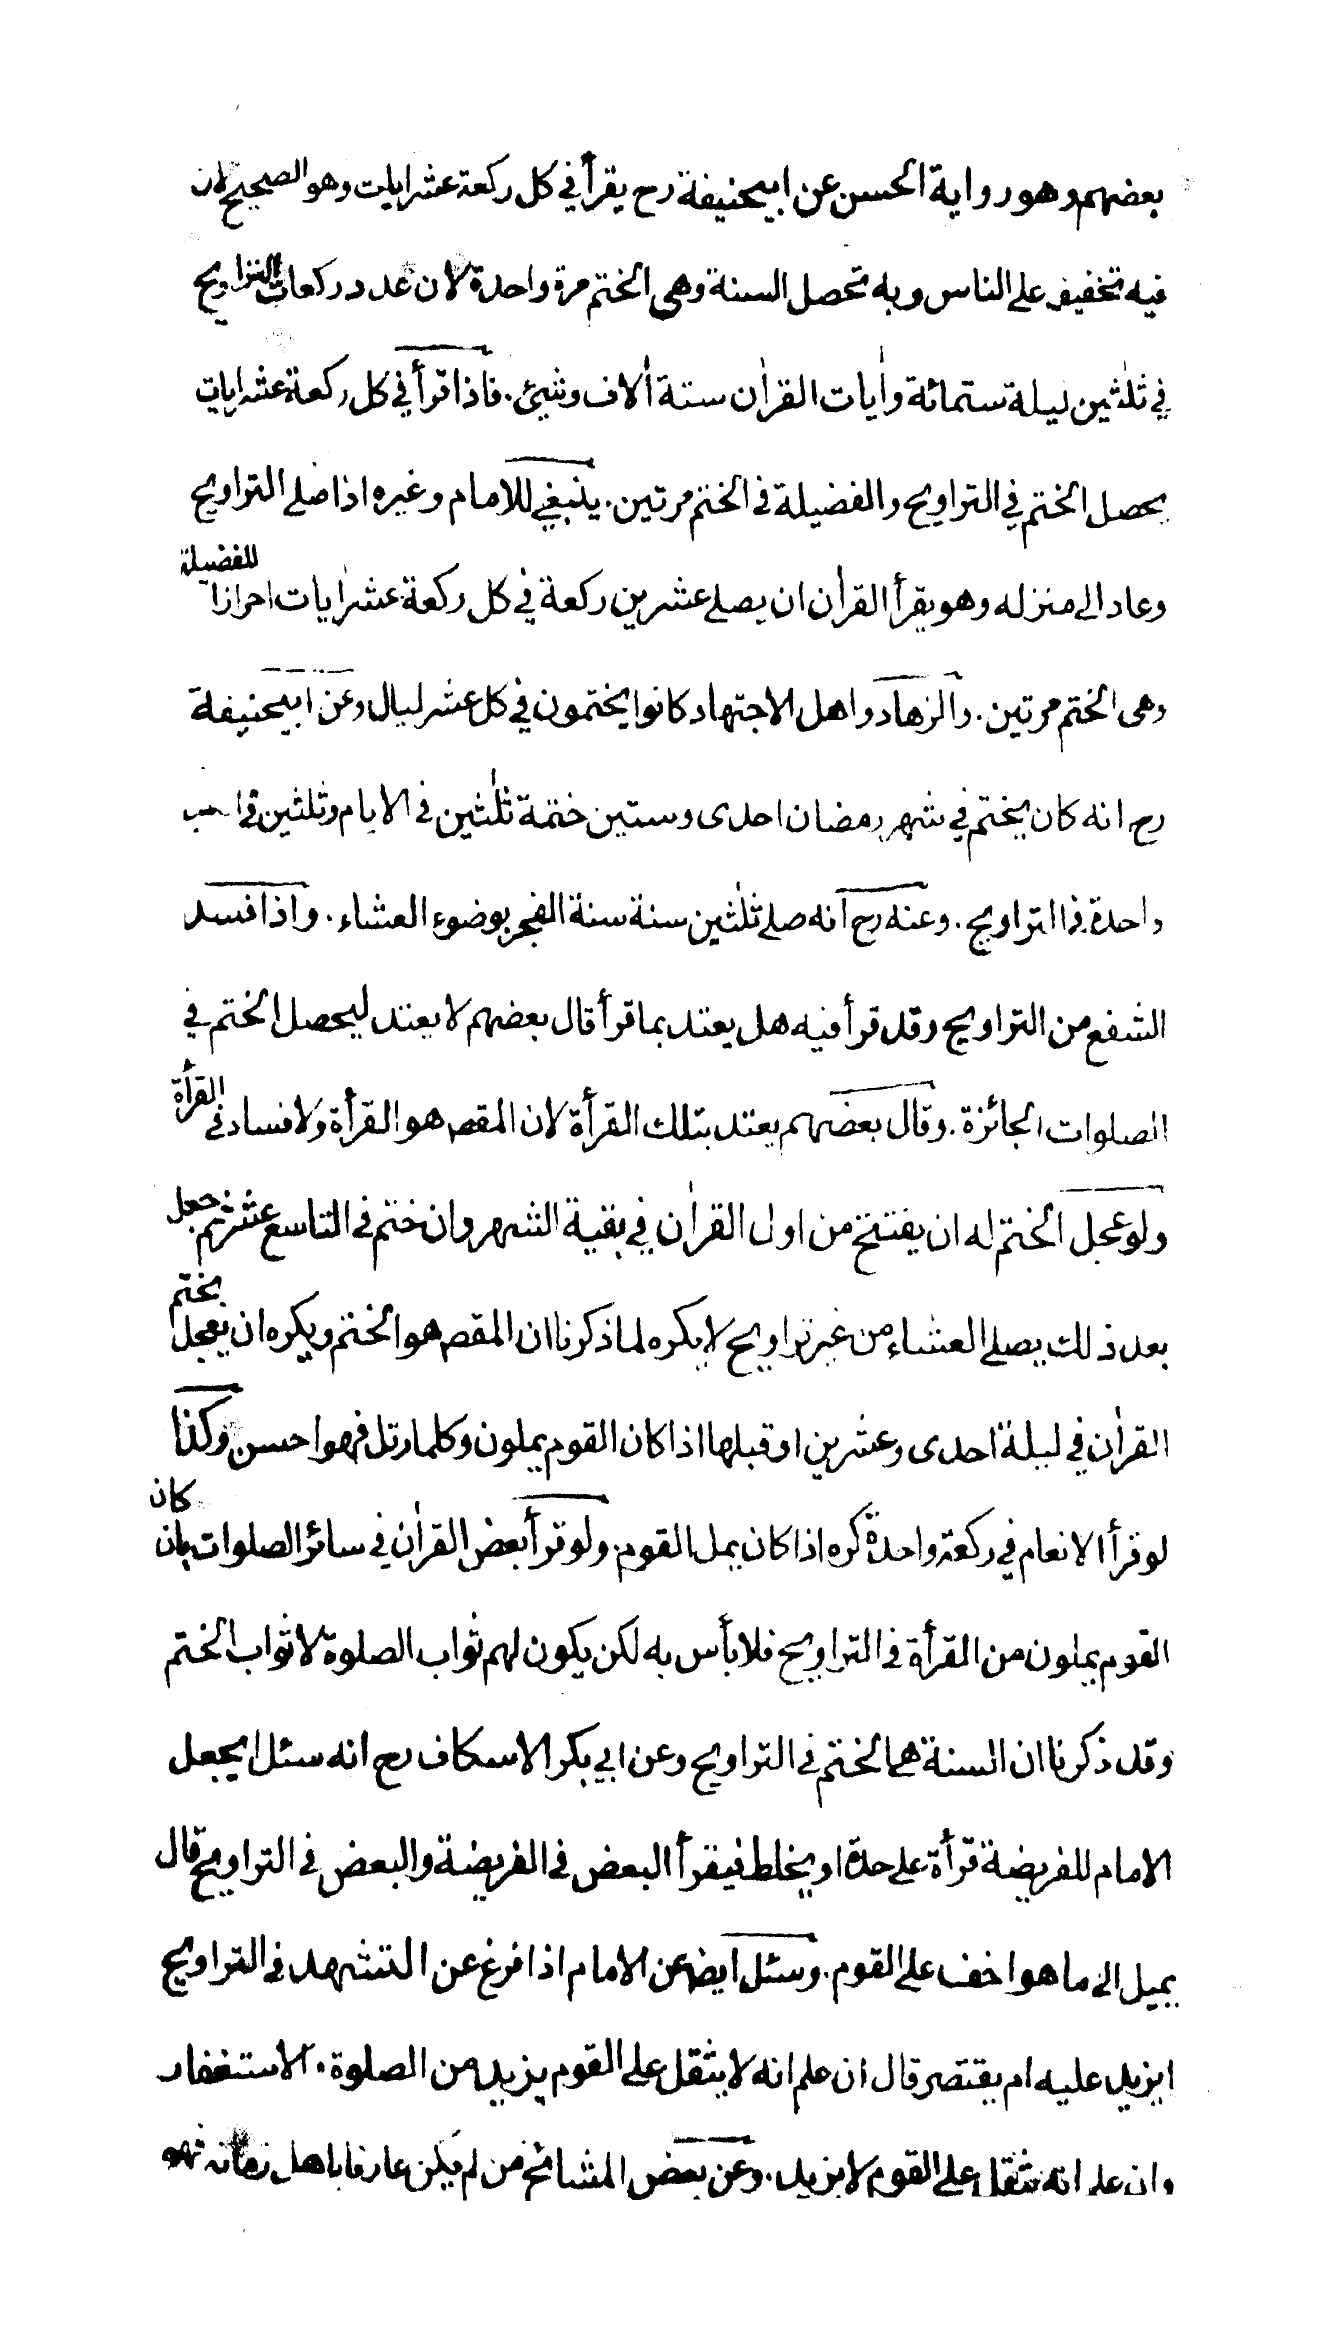 بعضهم وهو رواية الحسن عن ابيحنيفة رح يقرأ في كل ركعة عشر ايات وهو الصحيح لان
فيه تخفيف على الناس وبه تحصل السنة وهى الختم مرة واحدة لان عدد ركعات التراويح
في ثلٰثين ليلة ستمائة واٰيات القراٰن ستة اٰلاف وشيئ. فاذا قرأ في كل ركعة عشر ايات
يحصل الختم في التراويح والفضيلة في الختم مرتين. ينبغي للامام وغيره اذا صلى التراويح
وعاد الى منزله وهو يقرأ القراٰن ان يصلى عشرين ركعة في كل ركعة عشر اٰيات احرازا للفضيلة
وهى الختم مرتين. والزهاد واهل الاجتهاد كانوا يختمون في كل عشر ليال وعن ابيحنيفة
رح انه كان يختم في شهر رمضان احدى وستين ختمة ثلٰثين في الايام وثلثين في
واحدة في التراويح. وعنه رح انه صلى ثلٰثين سنة سنة الفجر بوضوء العشاء. واذا فسد
الشفع من التراويح وقد قرأ فيه هل يعتد بما قرأ قال بعضهم لا يعتد ليحصل الختم في
الصلوات الجائزة. وقال بعضهم يعتد بتلك القرأة لان المقصـ هو القرأة ولا فساد في القرأة
ولو عجل الختم له ان يفتتح من اول القراٰن في بقية الشهر وان ختم في التاسع عشر ثم جعل
بعد ذلك يصلى العشاء من غير تراويح لا يكره لما ذكرنا ان المقصـ هو الختم ويكره ان يعجل بختم
القراٰن في ليلة احدى وعشرين او قبلها اذا كان القوم يملون وكلما رتل فهو احسن وكذا
لو قرأ الانعام في ركعة واحدة كره اذا كان يمل القوم. ولو قرأ بعض القراٰن في سائر الصلوات بان كان
القوم يملون من القرأة في التراويح فلا بأس به لكن يكون لهم ثواب الصلوة لا ثواب الختم
وقد ذكرنا ان السنة هى الختم في التراويح وعن ابي بكر الاسكاف رح انه سئل ايجعل
الامام للفريضة قرأة على حدة او يخلط فيقرأ البعض في الفريضة والبعض في التراويح قال
يميل الى ما هو اخف على القوم. وسئل ايضـ عن الامام اذا فرغ عن التشهد في التراويح
ايزيد عليه ام يقتصر قال ان علم انه لا يثقل على القوم يزيد من الصلوة. الاستغفار
وان علم انه يثقل على القوم لا يزيد. وعن بعض المشائخ من لم يكن عارفا باهل زمانه فهو